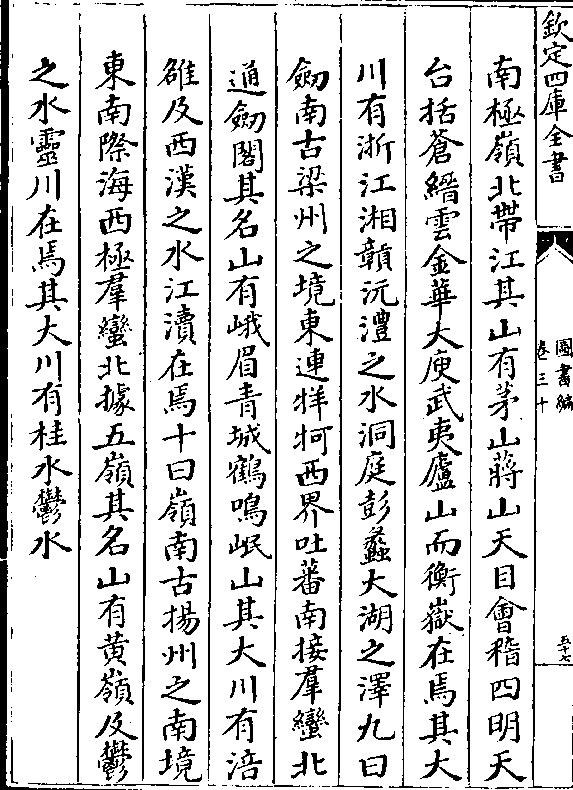 欽定四庫全書
圖書編
卷三十
五十七
南極嶺北帶江其山有茅山蔣山天目會稽四明天
台括蒼縉雲金華大庾武夷廬山而衡嶽在焉其大
川有浙江湘贑沅澧之水洞庭彭蠡大湖之澤九曰
劒南古梁州之境東連牂牁西界吐蕃南接羣蠻北
通劒閣其名山有峨眉青城鶴鳴岷山其大川有涪
雒及西漢之水江瀆在焉十曰嶺南古揚州之南境
東南際海西極羣蠻北據五嶺其名山有黄嶺及鬱
之水靈川在焉其大川有桂水鬱水